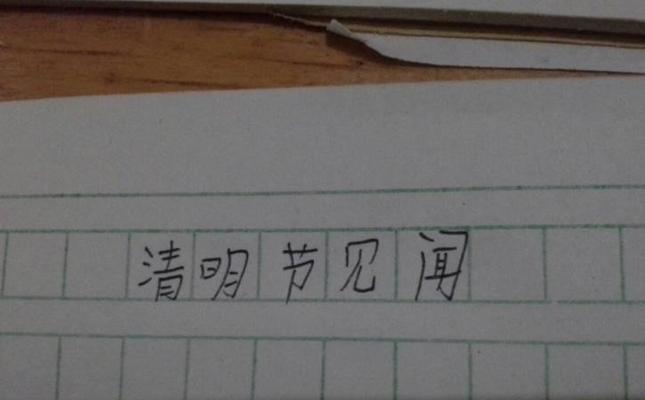 清明节见闻